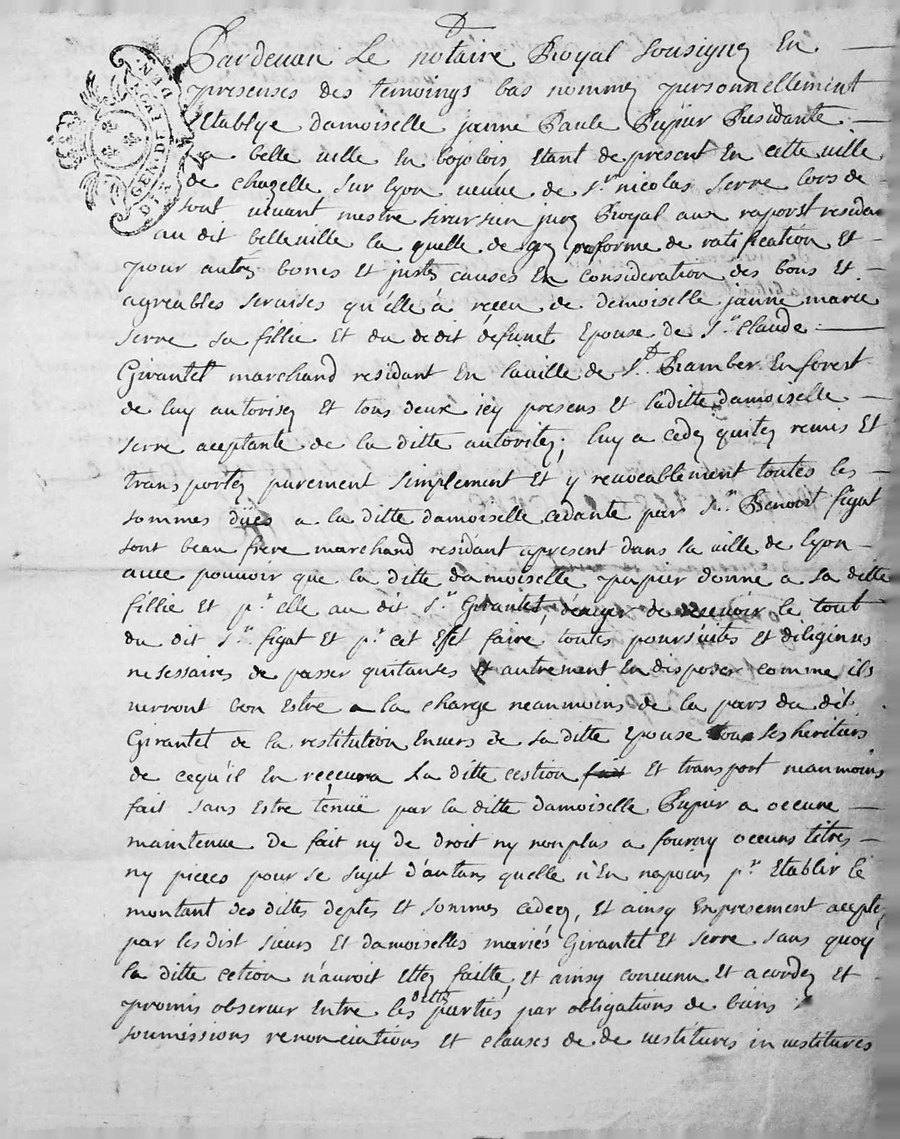 Pardevan Le notaire Royal sousigne En
presenses des temoings bas nommez personnellement
Etablye damoiselle janne Paule Pupier Residante
a belle ville En bojolois Etant de present En cette ville
de chazelle sur lyon veuve de Sr nicolas Serre lors de
sont vivant mestre sirursien jure Royal aux raporst residan
au dit belleville la quelle de gré forme de ratification Et
pour autres bones Et justes causes En consideration des bons Et
agreables servises qu'elle à receu de demoiselle janne marie
serre sa fillie Et du dedit defunct Epouse de Sr Claude
Girantet marchand residant En la ville de St Ramber En forest
de luy autorisez Et tous deux icy presens Et laditte damoiselle
serre aceptante de la ditte autoritez, luy a cedez quitez remis Et
transportez purement simplement Et yrevocablement toutes les
sommes dües a la ditte damoiselle cedante par Sr Benoist figat
sont beau frere marchand residant apresent dans la ville de lyon
avec pouvoir que la ditte damoiselle pupier donne a sa ditte
fillie Et pr elle au dit Sr Girantet, d'exiger de recevoir le tout
du dit Sr figat Et pr cet Efet faire toutes poursüites et diliginses
nesessaires de passer quitanses Et autrement En disposer comme ils
verront bon Estre a la charge neanmoins de la pars du dit
Girantet de la restitution Envers de sa ditte Epouse ses heritiers
de cequ'il En recevra La ditte cestion fait Et transport neanmoins
fait sans Estre tenüe par la ditte damoiselle Pupier a occune
maintenue de fait ny de droit ny nonplus a fournir occuns titres
ny pieces pour se sujet d'autans quelle n'En na poins pr Etablir le
montant des dittes deptes Et sommes cedez, Et ainsy Expresement acepte
par lesdist sieurs Et damoiselles mariés Girantet Et serre sans quoy
la ditte cetion n'auroit Ettez faitte, Et ainsy convenu Et acordez Et
promis observer Entre les dittes parties par obligations de biens
soumissions renonciations Et clauses de de vestitures in vestitures